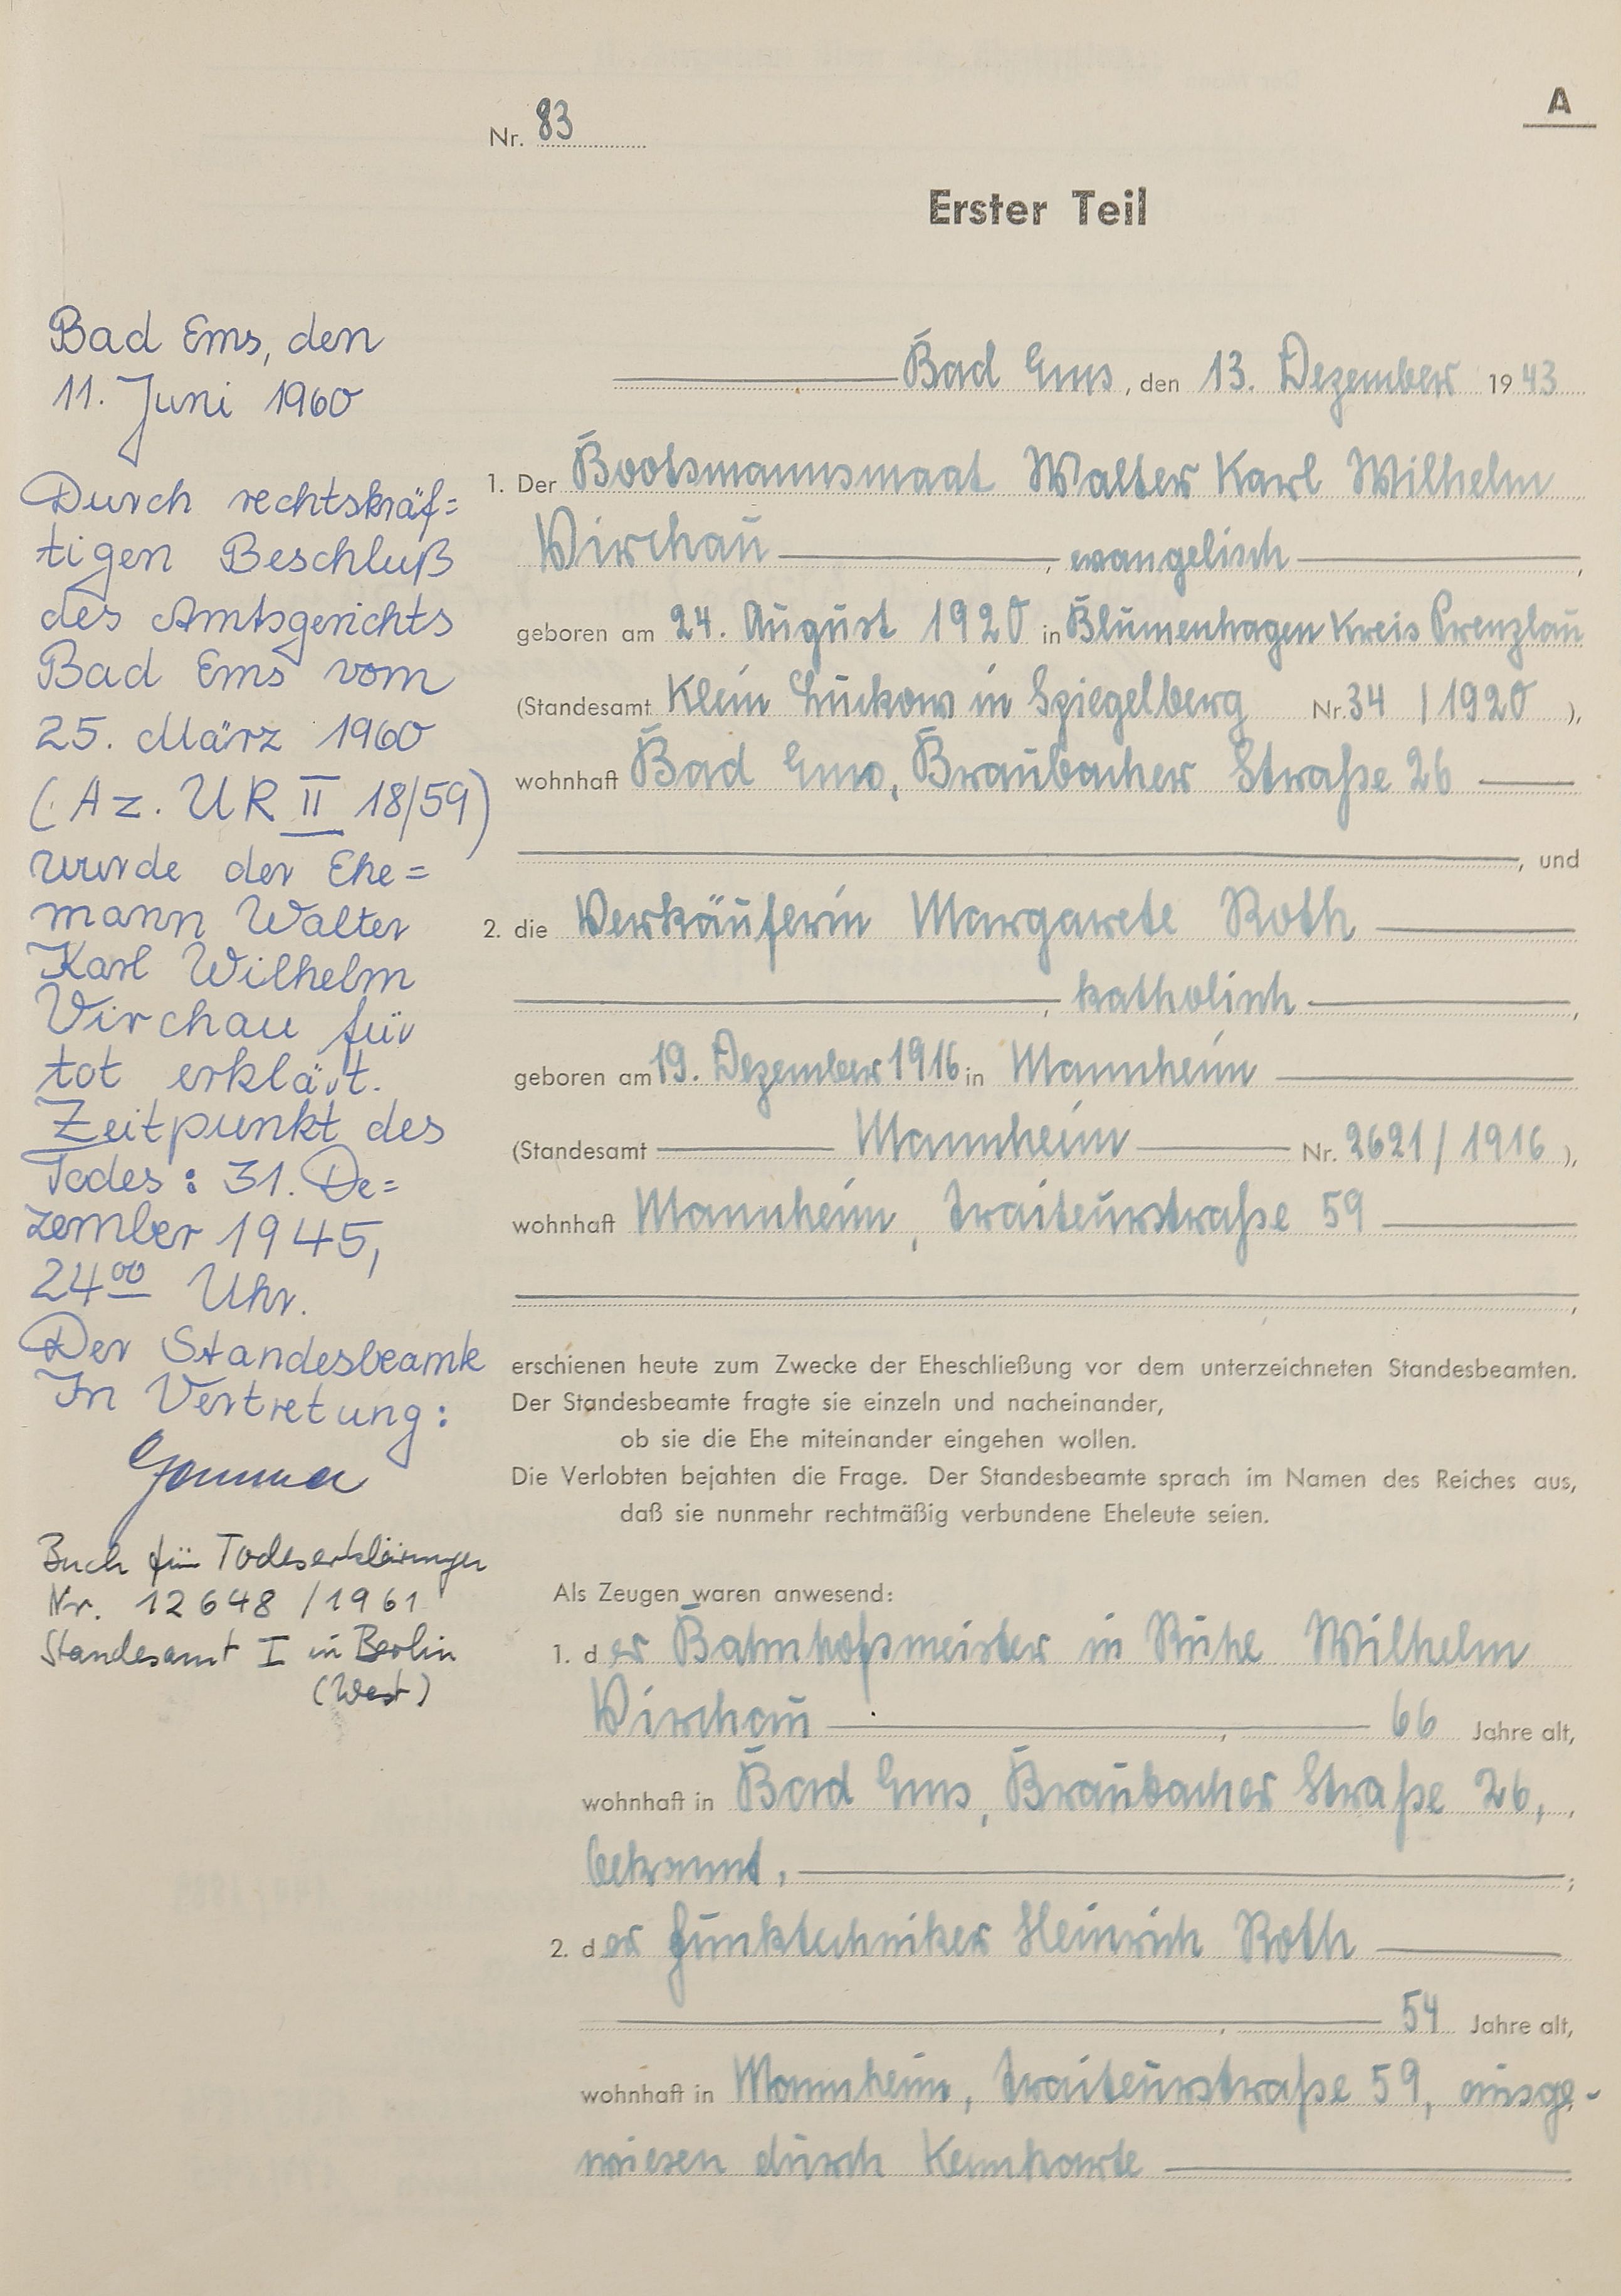 A
Nr. 83
Erster Teil
Bad Ems, den 13. Dezember 1943
1. Der Bootsmannsmaat Walter Karl Wilhelm
Virchau, evangelisch,
geboren am 24. August 1920 in Blumenhagen Kreis Prenzlau
(Standesamt Klein Luckow in Spiegelberg Nr. 34 / 1920 ),
wohnhaft Bad Ems, Braubacher Straße 26
, und
2. die Verkäuferin Margarete Roth
, katholisch,
geboren am 19. Dezember 1916 in Mannheim
(Standesamt Mannheim Nr. 2621 / 1916 ),
wohnhaft Mannheim, Traiteurstraße 59
,
erschienen heute zum Zwecke der Eheschließung vor dem unterzeichneten Standesbeamten.
Der Standesbeamte fragte sie einzeln und nacheinander,
ob sie die Ehe miteinander eingehen wollen.
Die Verlobten bejahten die Frage. Der Standesbeamte sprach im Namen des Reiches aus,
daß sie nunmehr rechtmäßig verbundene Eheleute seien.
Als Zeugen waren anwesend:
1. der Bahnhofsmeister in Ruhe Wilhelm
Virchau, 66 Jahre alt,
wohnhaft in Bad Ems, Braubacher Straße 26, ,
bekannt, ;
2. der Funktechniker Heinrich Roth
, 54 Jahre alt,
wohnhaft in Mannheim, Traiteurstraße 59, ausge-
wiesen durch Kennkarte
Bad Ems, den
11. Juni 1960
Durch rechtskräf=
tigen Beschluß
des Amtsgerichts
Bad Ems vom
25. März 1960
(Az. UR II 18/59)
wurde der Ehe=
mann Walter
Karl Wilhelm
Virchau für
tot erklärt.
Zeitpunkt des
Todes: 31. De=
zember 1945,
24⁰⁰ Uhr.
Der Standesbeamte
In Vertretung:
Buch für Todeserklärungen
Nr. 12648 / 1961
Standesamt I in Berlin
(West)